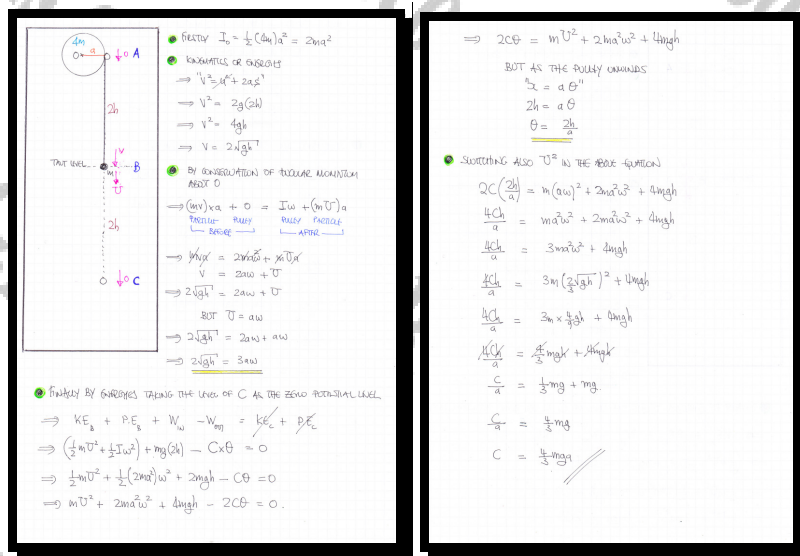 4m
0
a
0
A
2h
TAUT LEVEL
V
m
B
U
2h
0
C
FIRSTLY I₀ = ½(4m)a² = 2ma²
KINEMATICS OR ENERGIES
⇒ "V² = u² + 2as"
⇒ V² = 2g(2h)
⇒ V² = 4gh
⇒ V = 2√gh
BY CONSERVATION OF ANGULAR MOMENTUM
ABOUT O
⇒ (mv)×a + 0 = Iω + (mU)a
PARTICLE PULLY PULLY PARTICLE
BEFORE AFTER
⇒ mva = 2ma²ω + mUa
V = 2aω + U
⇒ 2√gh = 2aω + U
BUT U = aω
⇒ 2√gh = 2aω + aω
⇒ 2√gh = 3aω
FINALLY BY ENERGIES TAKING THE LEVEL OF C AS THE ZERO POTENTIAL LEVEL
⇒ KE_B + P.E_B + W_in − W_out = KE_C + P.E_C
⇒ (½mU² + ½Iω²) + mg(2h) − C×θ = 0
⇒ ½mU² + ½(2ma²)ω² + 2mgh − Cθ = 0
⇒ mU² + 2ma²ω² + 4mgh − 2Cθ = 0.
⇒ 2Cθ = mU² + 2ma²ω² + 4mgh
BUT AS THE PULLY UNWINDS
"x = aθ"
2h = aθ
θ = 2h/a
SWITCHING ALSO U² IN THE ABOVE EQUATION
2C(2h/a) = m(aω)² + 2ma²ω² + 4mgh
4Ch/a = ma²ω² + 2ma²ω² + 4mgh
4Ch/a = 3ma²ω² + 4mgh
4Ch/a = 3m(2/3√gh)² + 4mgh
4Ch/a = 3m × 4/9gh + 4mgh
4Ch/a = 4/3mgh + 4mgh
C/a = 1/3mg + mg.
C/a = 4/3mg
C = 4/3mga